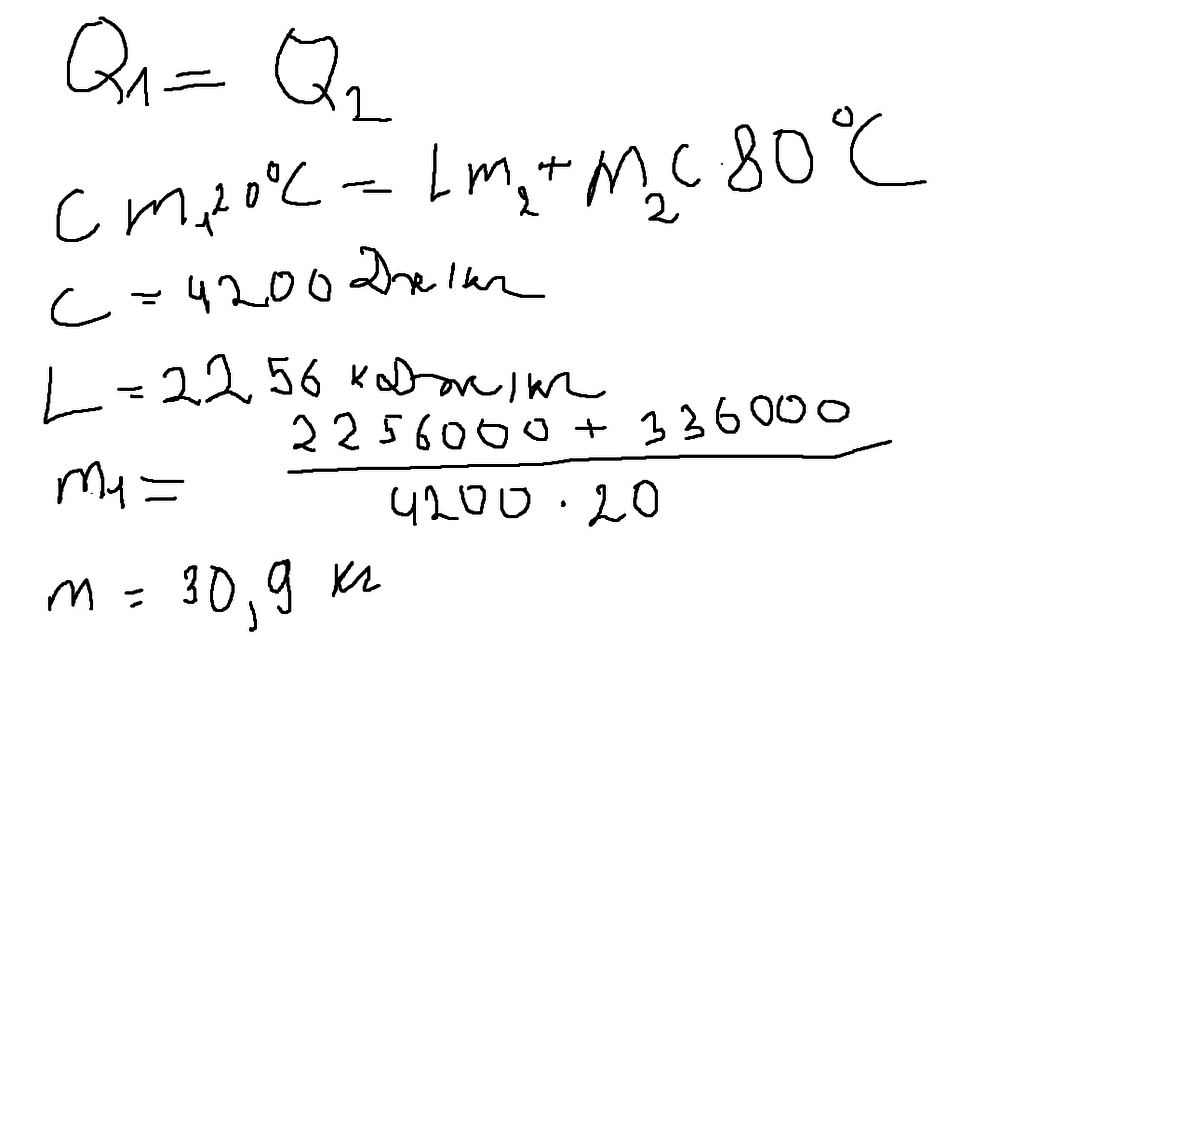 Q₁ = Q₂
C m₁20°C = Lm₂ + m₂C·80°C
C = 4200 Дж/кг
L = 2256 кДж/кг
m₁ = (2256000 + 336000) / (4200 · 20)
m = 30,9 кг